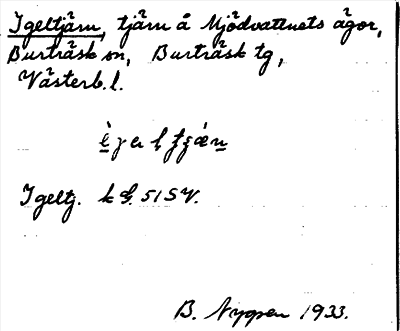 Igeltjärn, tjärn å Mjödvattnets ägor,
Burträsk sn, Burträsk tg,
Västerb. l.
Igeltj. k bl. 51 SV.
B. Nygren 1933.